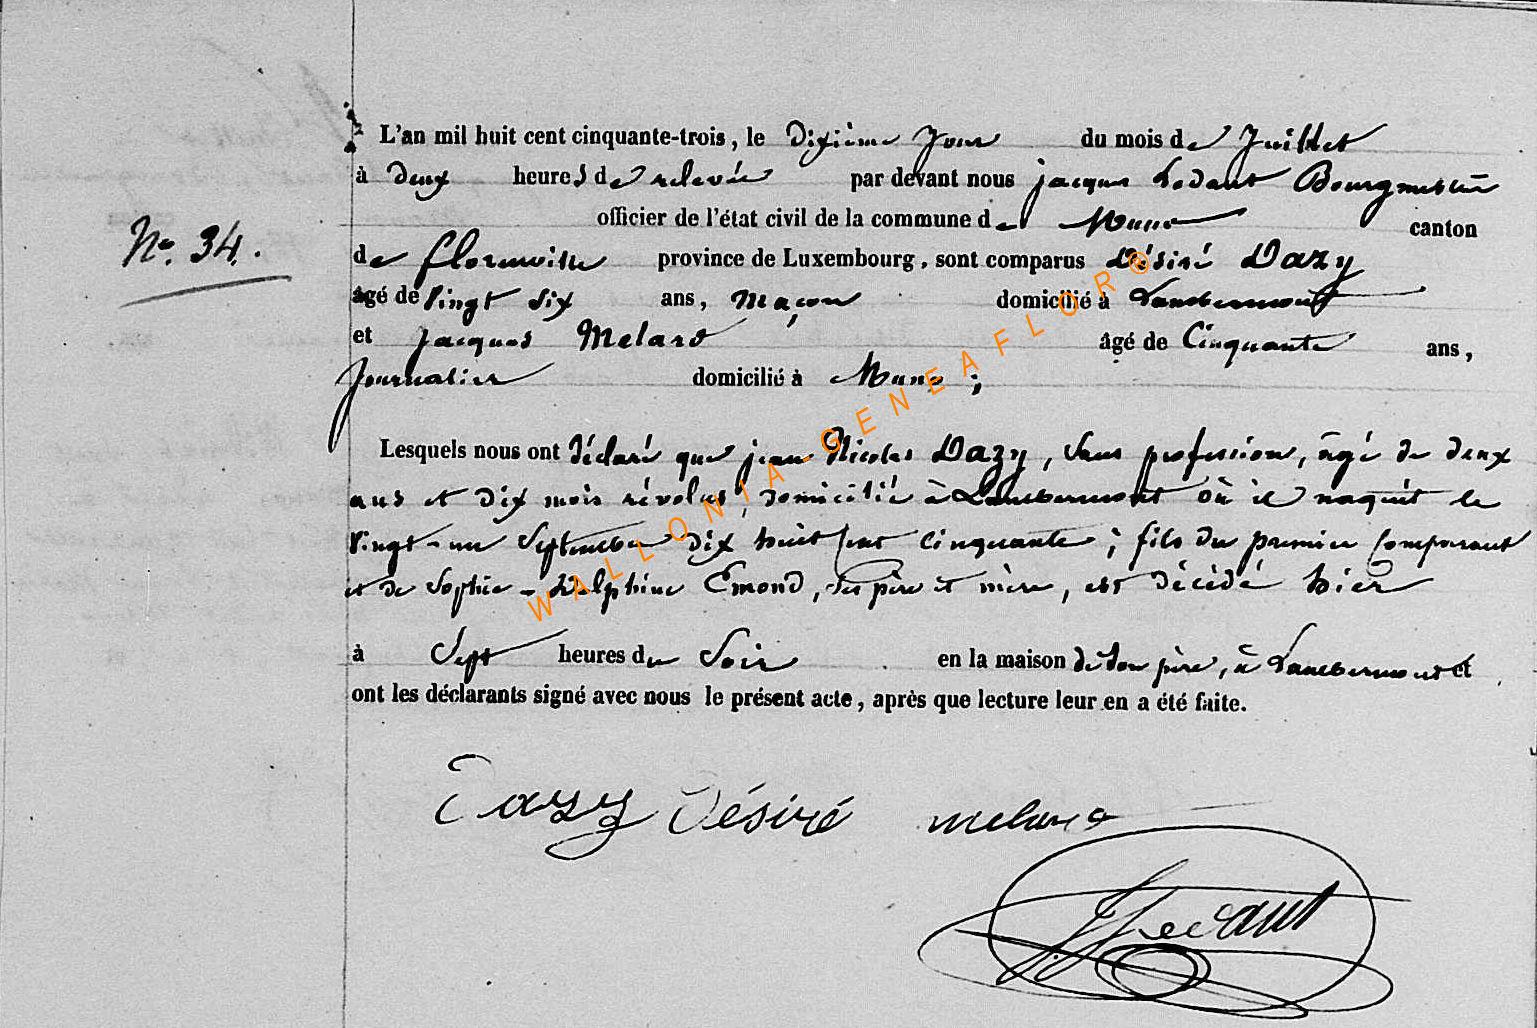 L'an mil huit cent cinquante-trois, le dixième jour du mois de Juillet
à deux heures de relevée par devant nous jacques Lodant Bourgmestre
officier de l'état civil de la commune de Muno canton
N.o 34.
de florenville province de Luxembourg, sont comparus Désiré Dazy
âgé de vingt six ans, Maçon domicilié à Lambermont
et jacques Melard âgé de Cinquante ans,
journalier domicilié à Muno ;
Lesquels nous ont déclaré que jean Nicolas Dazy, sans profession, âgé de deux
ans et dix mois révolus, domicilié à Lambermont où il naquit le
vingt-un Septembre dix huit cent cinquante ; fils du premier Comparant
et de Sophie - Delphine Emond, ses père et mère, est décédé hier
à Sept heures du Soir en la maison de son père, à Lambermont et
ont les déclarants signé avec nous le présent acte, après que lecture leur en a été faite.
Dazy Désiré melard
WALLONIA-GENEAFLOR®